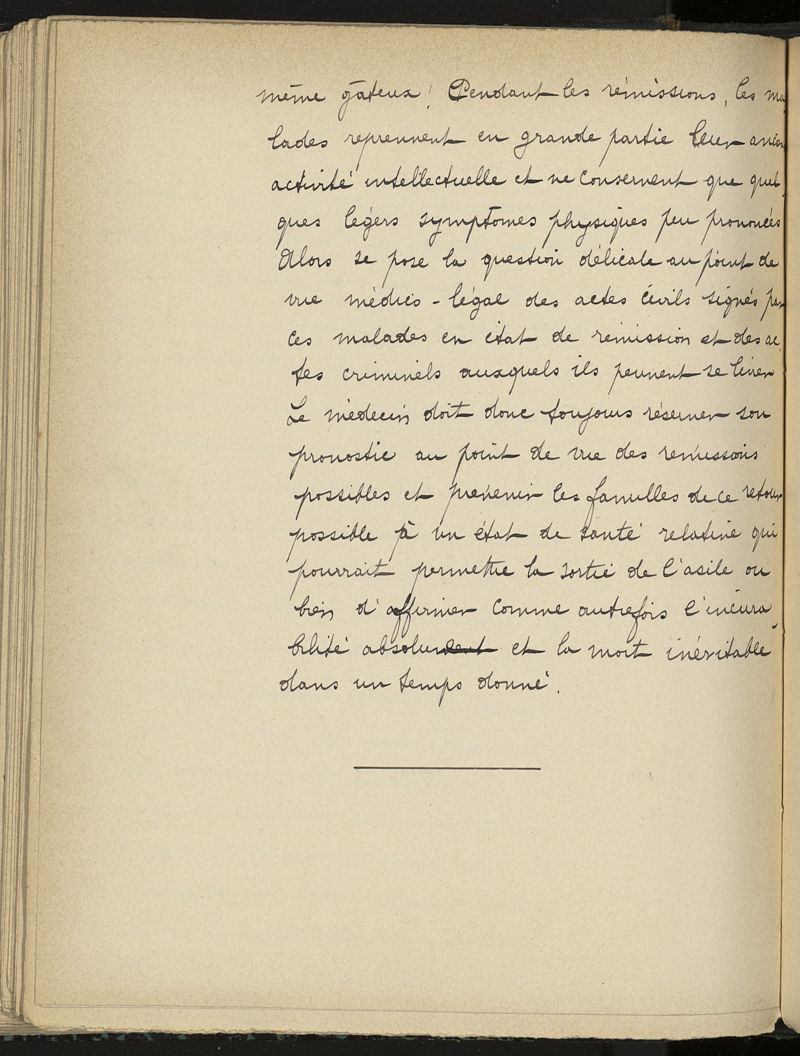 même gâteux! Pendant les rémissions, les ma
lades reprennent en grande partie leur ancien
activité intellectuelle et ne conservent que quel
ques légers symptômes physiques peu prononcés
Alors se pose la question délicate au point de
vue médico-légal des actes civils signés par
ces malades en état de rémission et des ac.
tes criminels auxquels ils peuvent se livrer
Le médecin doit donc toujours réserver son
pronostic au point de vue des remissions
possibles et prévenir les familles de ce retour
possible à un état de santé relative qui
pourrait permettre la sortie de l'asile ou
bien d'affirmer comme autrefois l'incura
bilité absolue et la mort inévitable
dans un temps donné.